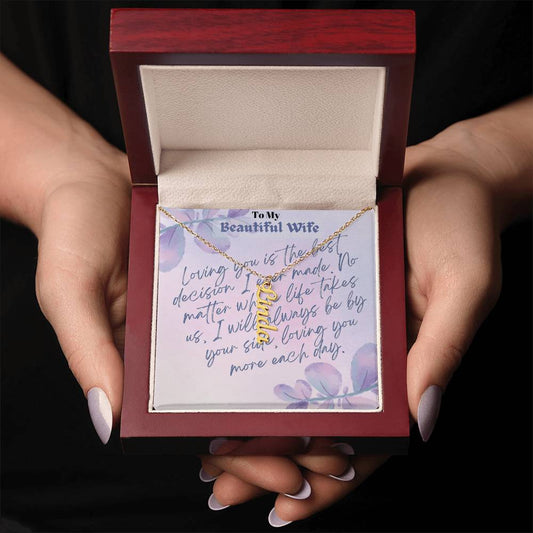 To My
Beautiful Wife
Loving you is the best
decision I ever made. No
matter what life takes
us, I will always be by
your side, loving you
more each day.
Linda